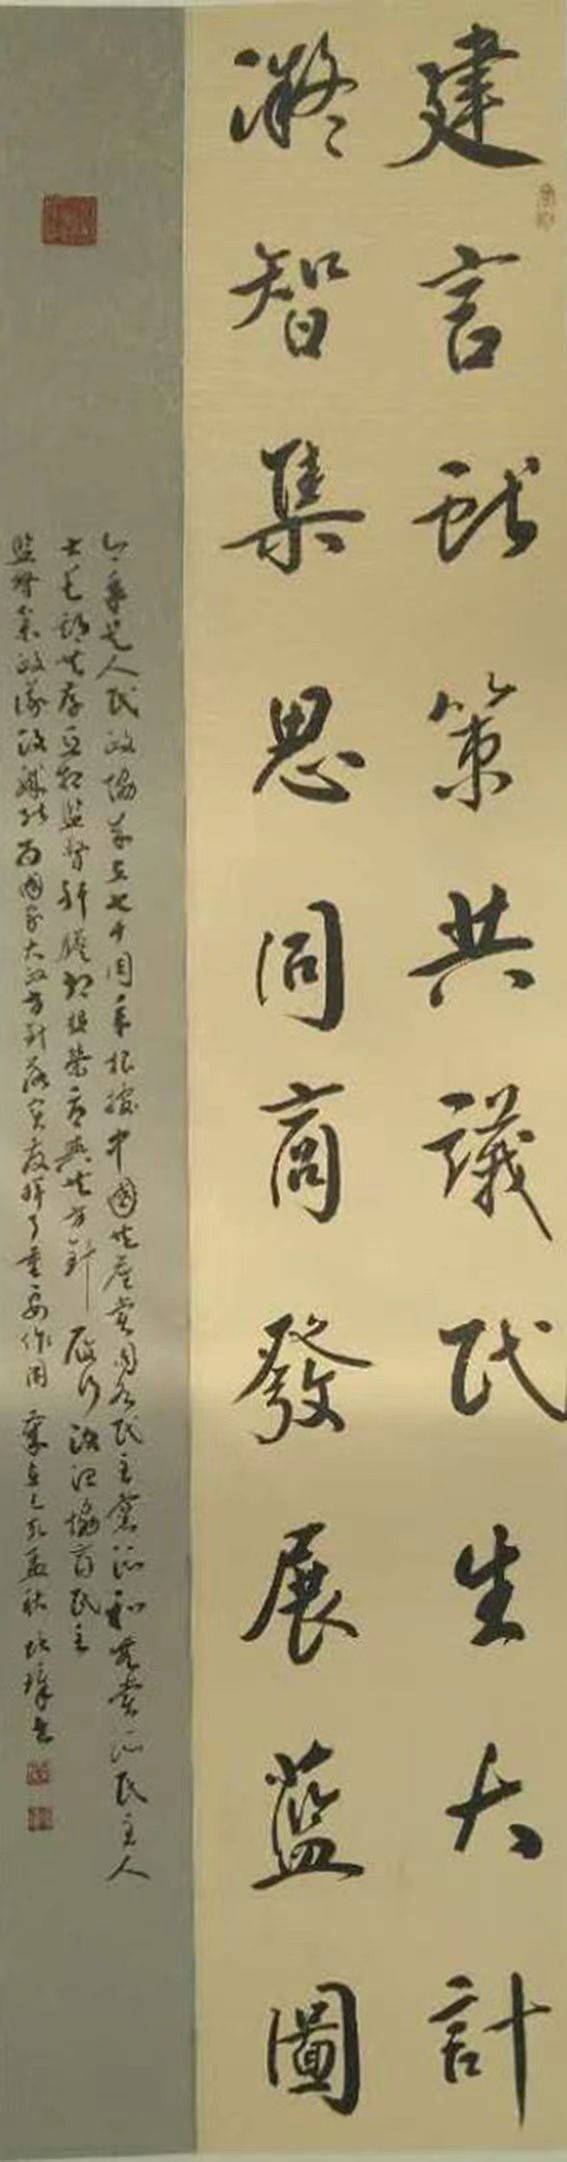 建言献策共議民生大計
凝智集思同商發展藍圖
今年是人民政協成立七十周年根據中國共產党同各民主党派和無党派民主人
士長期共存互相監督肝膽相照榮辱與共方針履行政治協商民主
監督參政議政職能为國家大政方針落實發揮了重要作用 歲在己亥孟秋